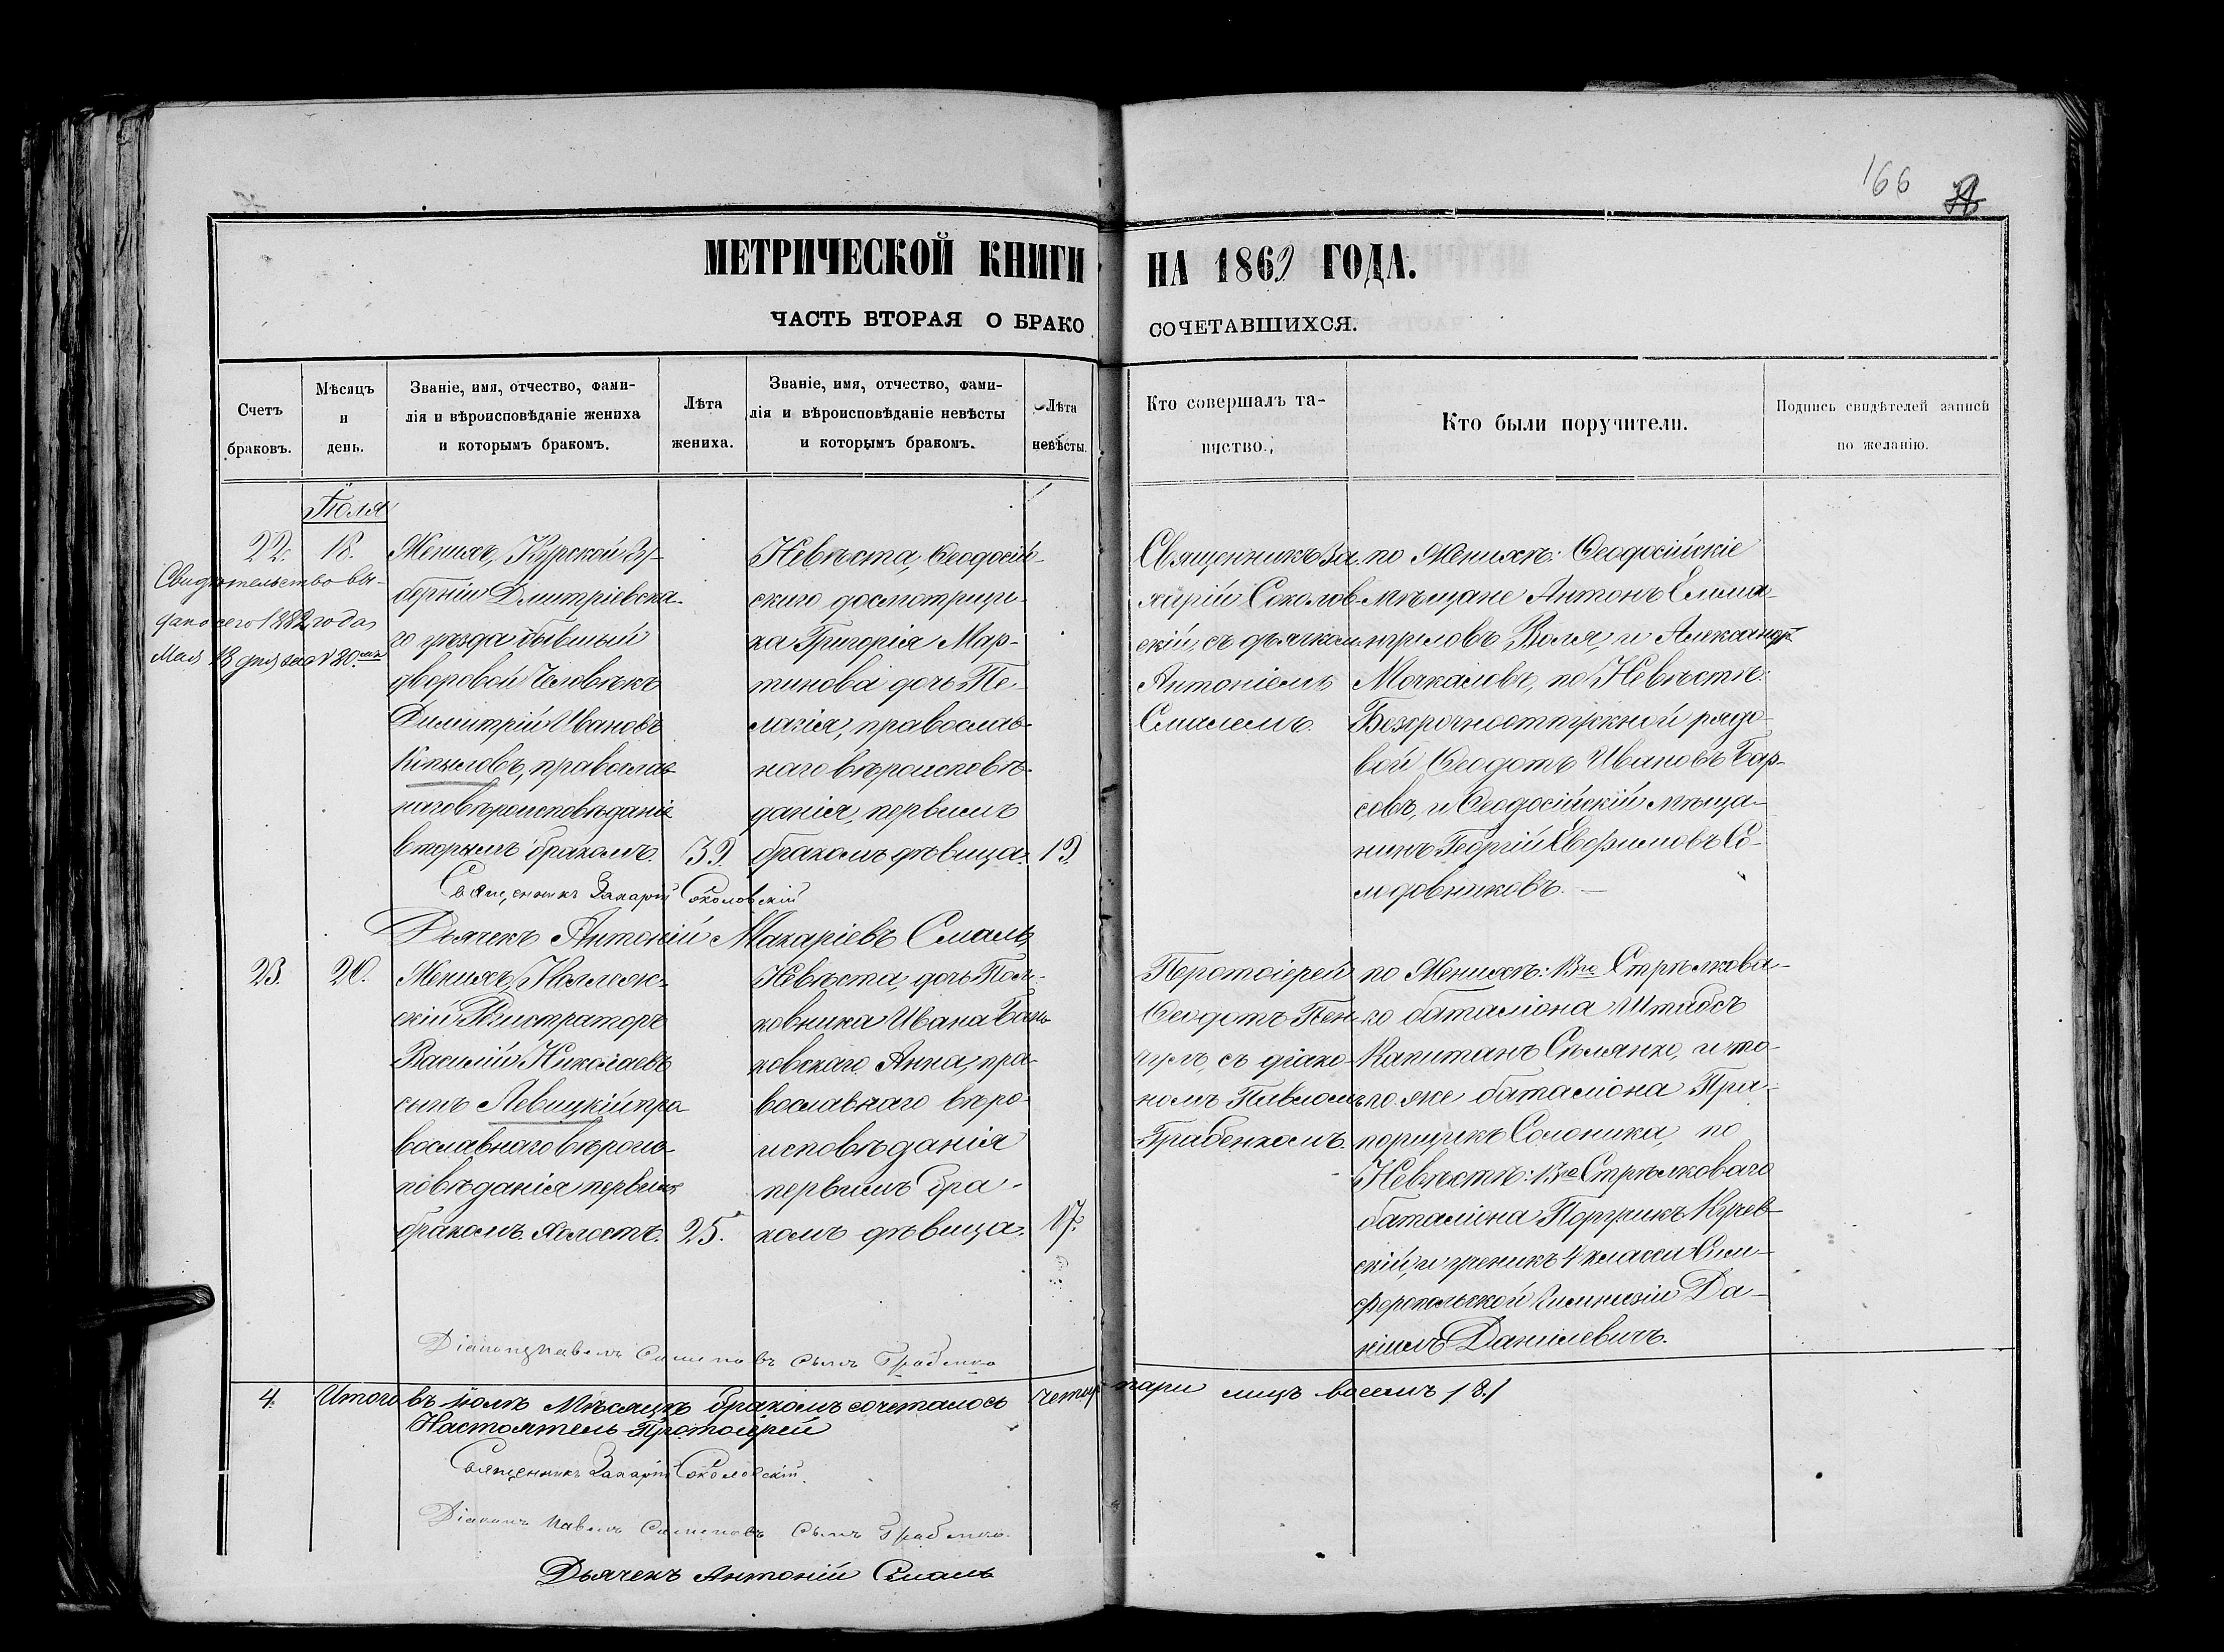 166
МЕТРИЧЕСКОЙ КНИГИ НА 1869 ГОДА.
ЧАСТЬ ВТОРАЯ О БРАКО СОЧЕТАВШИХСЯ.
Счетъ
браковъ.
Мѣсяцъ
и
день.
Званіе, имя, отчество, фами-
лія и вѣроисповѣданіе жениха
и которымъ бракомъ.
Лѣта
жениха.
Званіе, имя, отчество, фами-
лія и вѣроисповѣданіе невѣсты
и которымъ бракомъ.
Лѣта
невѣсты.
Кто совершалъ та-
инство.
Кто были поручители.
Подпись свидѣтелей записи
по желанію.
Іюля
22.
18.
Свидѣтельство вы-
дано сего 1882 года
Мая 13 дня за №
Женихъ, Курской Гу-
берніи Дмитріевска-
го уѣзда бывшій
дворовой Человѣкъ
Димитрій Ивановъ
православ-
наго вѣроисповѣданія
вторымъ бракомъ.
39.
Невѣста, Ѳеодосій-
скаго досмотрщи-
ка Григорія Мар-
тинова дочь Пе-
лагія, православ-
наго вѣроисповѣ-
данія, первымъ
бракомъ дѣвица.
19.
Священникъ За-
харій Соколов-
скій, съ дьячкомъ
Антоніемъ
Смалемъ.
по Женихѣ: Ѳеодосійскіе
мѣщане Антонъ
Воля, и Александръ
Мочкаловъ, по Невѣстѣ:
Безсрочноотпускной рядо-
вой Ѳеодотъ Ивановъ Бар-
совъ, и Ѳеодосійскій мѣща-
нинъ Георгій Евфимовъ Со-
лодовниковъ.
Священникъ Захарій Соколовскій
Дьячекъ Антоній Макаріевъ Смаль
23.
20.
Женихъ, Коллеж-
скій Регистраторъ
Василій Николаевъ
сынъ Левицкій пра-
вославнаго вѣроис-
повѣданія первымъ
бракомъ. холостъ.
25.
Невѣста, дочь Пол-
ковника Ивана Бань-
ковскаго, Анна, пра-
вославнаго вѣро-
исповѣданія
первымъ бра-
комъ дѣвица.
17.
Протоіерей
Ѳеодотъ Пен-
чулъ, съ діако-
номъ Павломъ
Грабенкомъ.
по Женихѣ: 13го Стрѣлкова-
го баталіона Штабсъ
Капитанъ Сѣлянко, и то-
го же баталіона Пра-
порщикъ Солоника, по
Невѣстѣ: 13го Стрѣлковаго
баталіона Поручикъ Куев-
скій, и ученикъ 4 класса Сим-
феропольской Гимназіи Да-
ніилъ Данилевичъ.
Діаконъ Павелъ Сименовъ сынъ Грабенко
4. Итого въ Іюлѣ Мѣсяцѣ бракомъ сочеталось четыр пари лицъ восемь /8./
Настоятель Протоіерей
Священникъ Захарій Соколовскій.
Діаконъ Павелъ Сименовъ сынъ Грабенко.
Дьячекъ Антоній Смаль